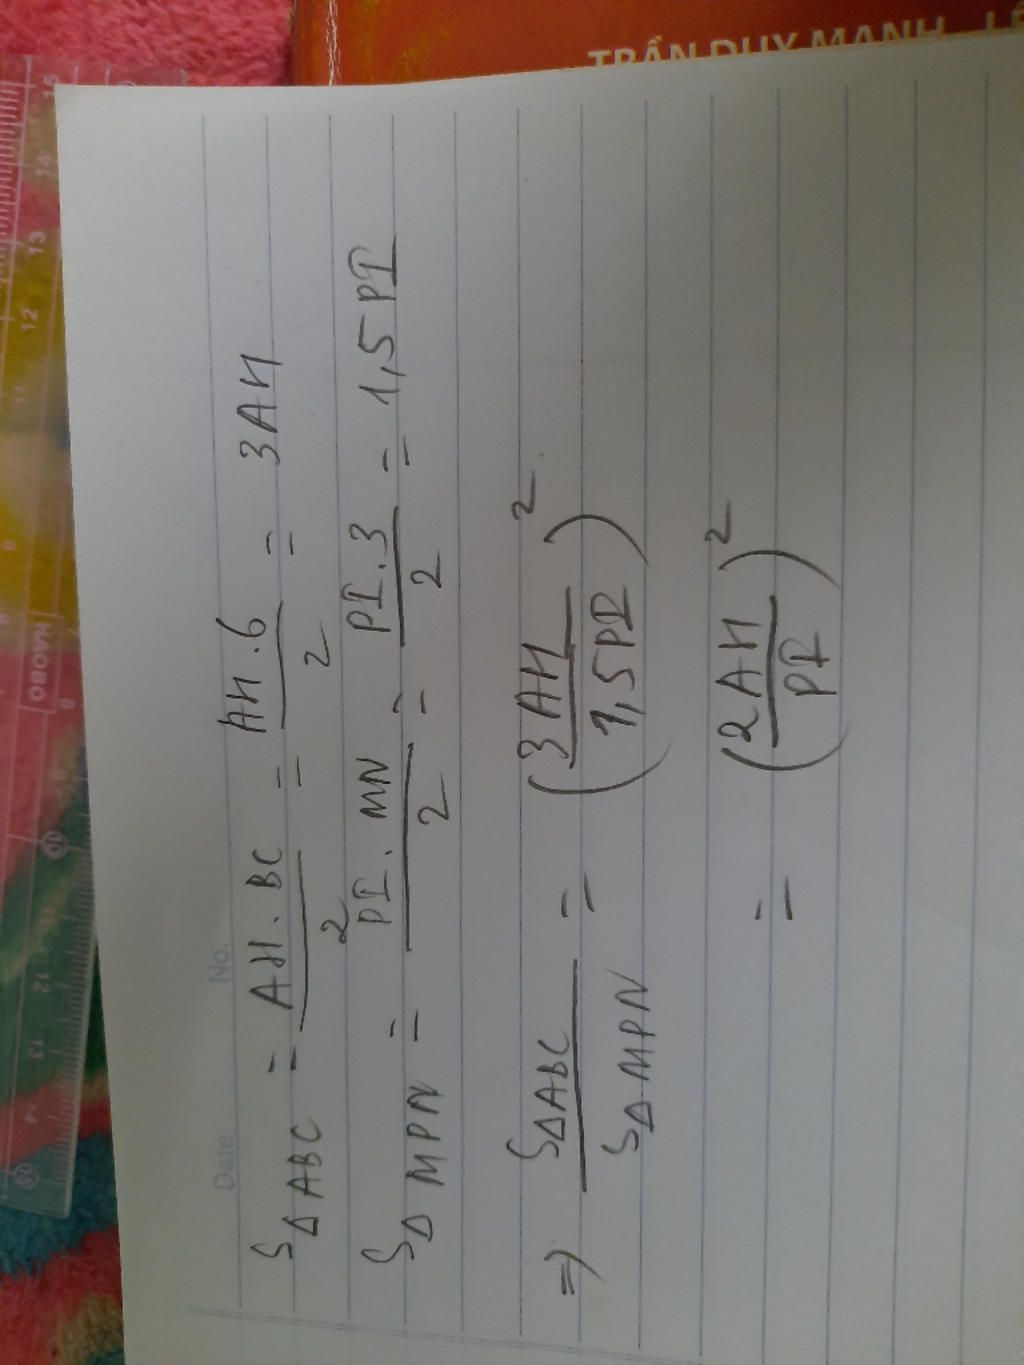 TRẦN DUY MẠNH
HAOBO
Date No.
S Δ ABC = AH . BC / 2 = AH . 6 / 2 = 3AH
S Δ MPN = PI . MN / 2 = PI . 3 / 2 = 1,5 PI
=> SΔABC / SΔMPN = (3AH / 1,5PI)²
= (2AH / PI)²